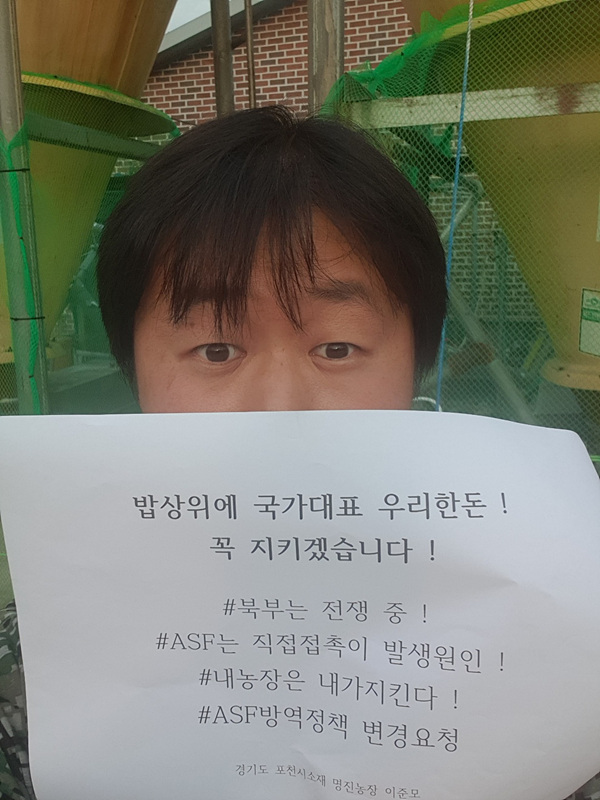 밥상위에 국가대표 우리한돈 !
꼭 지키겠습니다 !
#북부는 전쟁 중 !
#ASF는 직접접촉이 발생원인 !
#내농장은 내가지킨다 !
#ASF방역정책 변경요청
경기도 포천시소재 명진농장 이준모